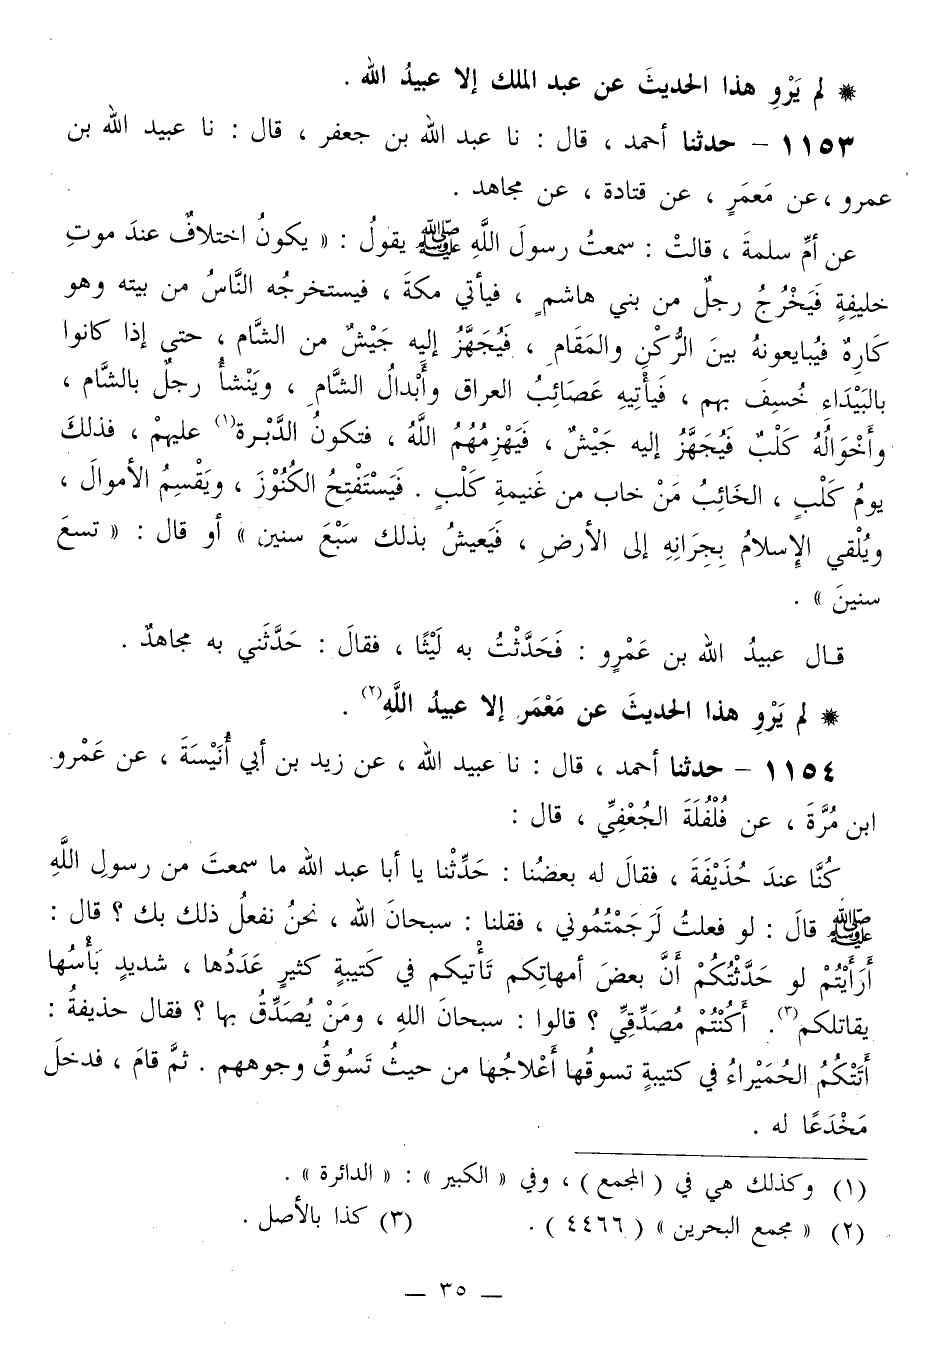 * لم يَرْوِ هذا الحديثَ عن عبد الملك إلا عبيدُ الله .
١١٥٣ – حدثنا أحمد ، قال : نا عبد الله بن جعفر ، قال : نا عبيد الله بن
عمرو ، عن مَعمَرٍ ، عن قتادة ، عن مجاهد .
عن أمِّ سلمةَ ، قالتْ : سمعتُ رسولَ اللَّهِ ﷺ يقولُ : « يكونُ اختلافٌ عندَ موتِ
خليفةٍ فَيَخْرُجُ رجلٌ من بني هاشمٍ ، فيأتي مكةَ ، فيستخرجُه النَّاسُ من بيته وهو
كَارِهٌ فيُبايعونهُ بينَ الرُّكْنِ والمَقَامِ ، فَيُجَهَّزُ إليه جَيْشٌ من الشَّام ، حتى إذا كانوا
بالبَيْدَاءِ خُسِفَ بهم ، فَيَأْتِيهِ عَصَائبُ العراق وأَبْدالُ الشَّامِ ، ويَنْشأُ رجلٌ بالشَّام ،
وأَخْوَالُهُ كَلْبٌ فَيُجَهَّزُ إليه جَيْشٌ ، فَيَهْزِمُهُمُ اللَّهُ ، فتكونُ الدَّبْرة(١) عليهمْ ، فذلكَ
يومُ كَلْبٍ ، الخَائِبُ مَنْ خاب من غَنيمةِ كَلْبٍ . فَيَسْتَفْتِحُ الكُنُوْزَ ، ويَقْسِمُ الأموالَ ،
ويُلْقي الإِسلامُ بِجِرَانِهِ إلى الأرضِ ، فَيَعيشُ بذلك سَبْعَ سنين » أو قال : « تسعَ
سنينَ » .
قال عبيدُ الله بن عَمْرٍو : فَحَدَّثْتُ به لَيْثًا ، فقالَ : حَدَّثَني به مجاهدٌ .
* لم يَرْوِ هذا الحديثَ عن مَعْمَر إلا عبيدُ اللَّهِ(٢) .
١١٥٤ – حدثنا أحمد ، قال : نا عبيد الله ، عن زيد بن أبي أُنَيْسَةَ ، عن عَمْرو
ابن مُرَّةَ ، عن فُلْفُلَةَ الجُعْفِيِّ ، قال :
كُنَّا عندَ حُذَيْفَةَ ، فقالَ له بعضُنا : حَدِّثْنا يا أبا عبد الله ما سمعتَ من رسولِ اللَّهِ
ﷺ قالَ : لو فعلتُ لَرَجَمْتُمُوني ، فقلنا : سبحانَ الله ، نحنُ نفعلُ ذلك بك ؟ قال :
أَرَأَيْتُمْ لو حَدَّثْتُكُمْ أَنَّ بعضَ أمهاتِكم تَأْتيكم في كَتيبةٍ كثيرٍ عَدَدُها ، شديدٍ بَأْسُها
يقاتلكم(٣). أَكُنْتُمْ مُصَدِّقِيِّ ؟ قالوا : سبحانَ اللهِ ، ومَنْ يُصَدِّقُ بها ؟ فقال حذيفةُ :
أَتَتْكُمُ الحُمَيْراءُ في كتيبةٍ تسوقُها أَعْلاجُها من حيثُ تَسُوقُ وجوههم . ثمَّ قامَ ، فدخلَ
مَخْدَعًا له .
(١) وكذلك هي في ( المجمع ) ، وفي « الكبير » : « الدائرة » .
(٢) « مجمع البحرين » ( ٤٤٦٦ ) . (٣) كذا بالأصل .
– ٣٥ –